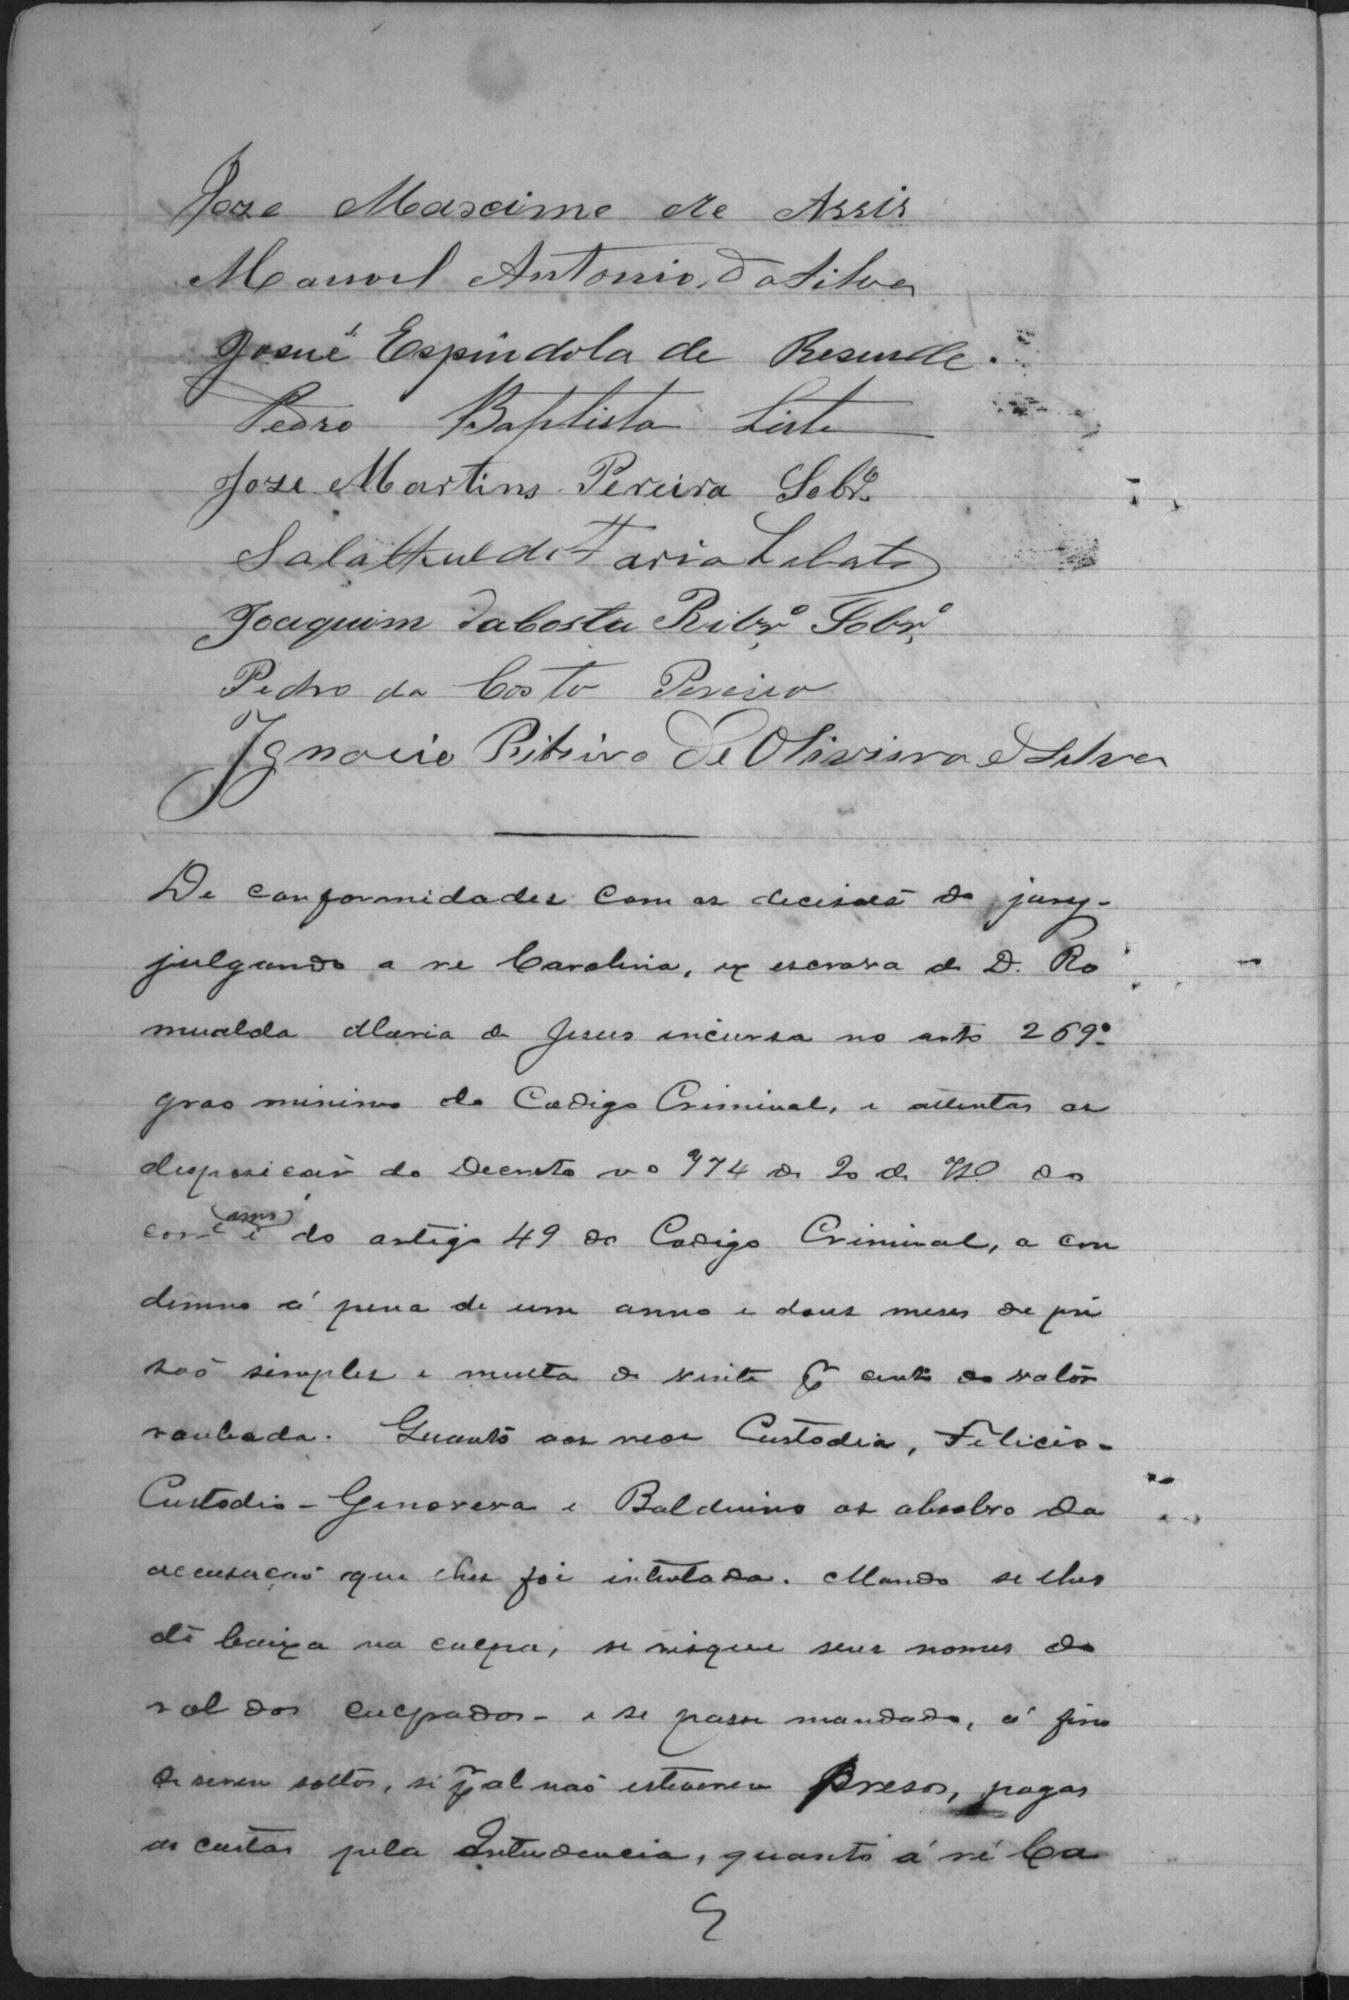 Joze Mascimo de Assis
Manoel Antonio da Silva
Josué Espindola de Resende.
Pedro Baptista Leite
Joze Martins Pereira Sobrº
Salathiel de Faria Lobato
Joaquim da Costa Ribrº Sobrº
Pedro da Costa Pereira
Ignacio Ribeiro de Oliveira e Silva
De conformidades com as decisoẽs do jury-
julgando a re Carolina, ex escrava de D. Ro
mualda Maria de Jesus incursa no arto 269º
grao minimo do Codigo Criminal, e attentas as
disposicoẽs do Decreto nº 774 de 20 de 7brº do
corre (anno) e do artigo 49 do Codigo Criminal, a con
demno á pena de um anno e dous meses de pri
saõ simples e multa de vinte por cento do valôr
roubado. Quanto aos reos Custodia, Felicio-
Custodio - Genoveva e Balduino os absolvo da
accusaçaõ que lhes foi intentada. Mando se lhes
dê baixa na culpa, se risque seus nomes do
rol dos culpados - e se passe mandado, á fim
de serem soltos, si por al naõ estiverem presos, pagas
as custas pela Intendencia, quanto á ré Ca